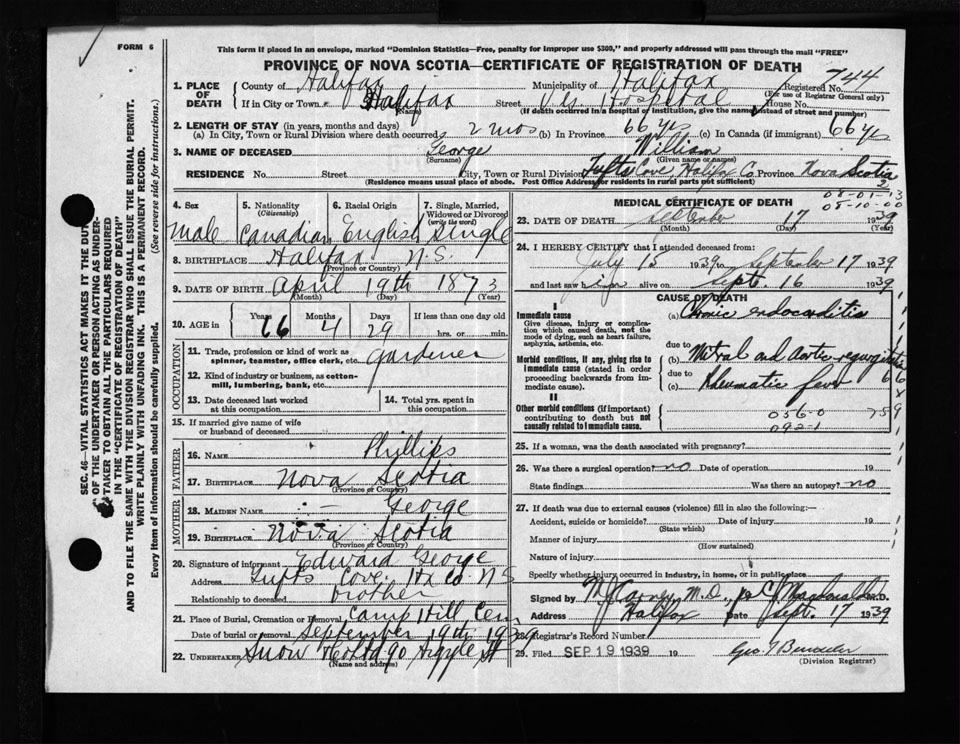 FORM 6
This form if placed in an envelope, marked "Dominion Statistics—Free, penalty for improper use $300," and properly addressed will pass through the mail "FREE"
PROVINCE OF NOVA SCOTIA—CERTIFICATE OF REGISTRATION OF DEATH
SEC. 46—VITAL STATISTICS ACT MAKES IT THE DUTY
OF THE UNDERTAKER OR PERSON ACTING AS UNDER-
TAKER TO OBTAIN ALL THE PARTICULARS REQUIRED
IN THE "CERTIFICATE OF REGISTRATION OF DEATH"
AND TO FILE THE SAME WITH THE DIVISION REGISTRAR WHO SHALL ISSUE THE BURIAL PERMIT.
WRITE PLAINLY WITH UNFADING INK. THIS IS A PERMANENT RECORD.
Every item of information should be carefully supplied. (See reverse side for instructions.)
1. PLACE OF DEATH County of Halifax Municipality of Halifax Registered No. 744
(For use of Registrar General only)
If in City or Town Halifax Street V.G. Hospital House No.
(Name) (If death occurred in a hospital or institution, give the name instead of street and number)
2. LENGTH OF STAY (in years, months and days)
(a) In City, Town or Rural Division where death occurred 2 mos (b) In Province 66 yrs (c) In Canada (if immigrant) 66 yrs
3. NAME OF DECEASED George William
(Surname) (Given name or names)
RESIDENCE No. Street City, Town or Rural Division Tufts Cove, Halifax Co. Province Nova Scotia
(Residence means usual place of abode. Post Office Address for residents in rural parts not sufficient)
2
08-01-13
08-10-00
4. Sex
male
5. Nationality
(Citizenship)
Canadian
6. Racial Origin
English
7. Single, Married,
Widowed or Divorced
(write the word)
Single
8. BIRTHPLACE Halifax N.S.
(Province or Country)
9. DATE OF BIRTH April 19th 1873
(Month) (Day) (Year)
10. AGE in Years 66 Months 4 Days 29 If less than one day old
hrs. or min.
OCCUPATION
11. Trade, profession or kind of work as
spinner, teamster, office clerk, etc. gardener
12. Kind of industry or business, as cotton-
mill, lumbering, bank, etc.
13. Date deceased last worked
at this occupation
14. Total yrs. spent in
this occupation
15. If married give name of wife
or husband of deceased
FATHER
16. NAME Phillips
17. BIRTHPLACE Nova Scotia
(Province or Country)
MOTHER
18. MAIDEN NAME — George
19. BIRTHPLACE Nova Scotia
(Province or Country)
20. Signature of informant Edward George
Address Tufts Cove. Hx Co. N.S
Relationship to deceased brother
21. Place of Burial, Cremation or Removal Camp Hill Cem
Date of burial or removal September 19th 1939
22. UNDERTAKER Snow & Co Ltd 90 Argyle St
(Name and address)
MEDICAL CERTIFICATE OF DEATH
23. DATE OF DEATH September 17 1939
(Month) (Day) (Year)
24. I HEREBY CERTIFY that I attended deceased from:
July 15 1939 to September 17 1939
and last saw him alive on Sept. 16 1939
CAUSE OF DEATH
I
Immediate cause
Give disease, injury or complica-
tion which caused death, not the
mode of dying, such as heart failure,
asphyxia, asthenia, etc.
(a) Chronic endocarditis
due to
Morbid conditions, if any, giving rise to
immediate cause (stated in order
proceeding backwards from im-
mediate cause).
(b) Mitral and Aortic regurgitation
due to
(c) Rheumatic fever
II
Other morbid conditions (if important)
contributing to death but not
causally related to immediate cause.
056-0
092-1
25. If a woman, was the death associated with pregnancy?
26. Was there a surgical operation? no Date of operation 19
State findings Was there an autopsy? no
27. If death was due to external causes (violence) fill in also the following:—
Accident, suicide or homicide? Date of injury 19
(State which)
Manner of injury
(How sustained)
Nature of injury
Specify whether injury occurred in industry, in home, or in public place
Signed by M.D.
Address Halifax Date Sept. 17 1939
28. Registrar's Record Number
29. Filed SEP 19 1939 19
(Division Registrar)